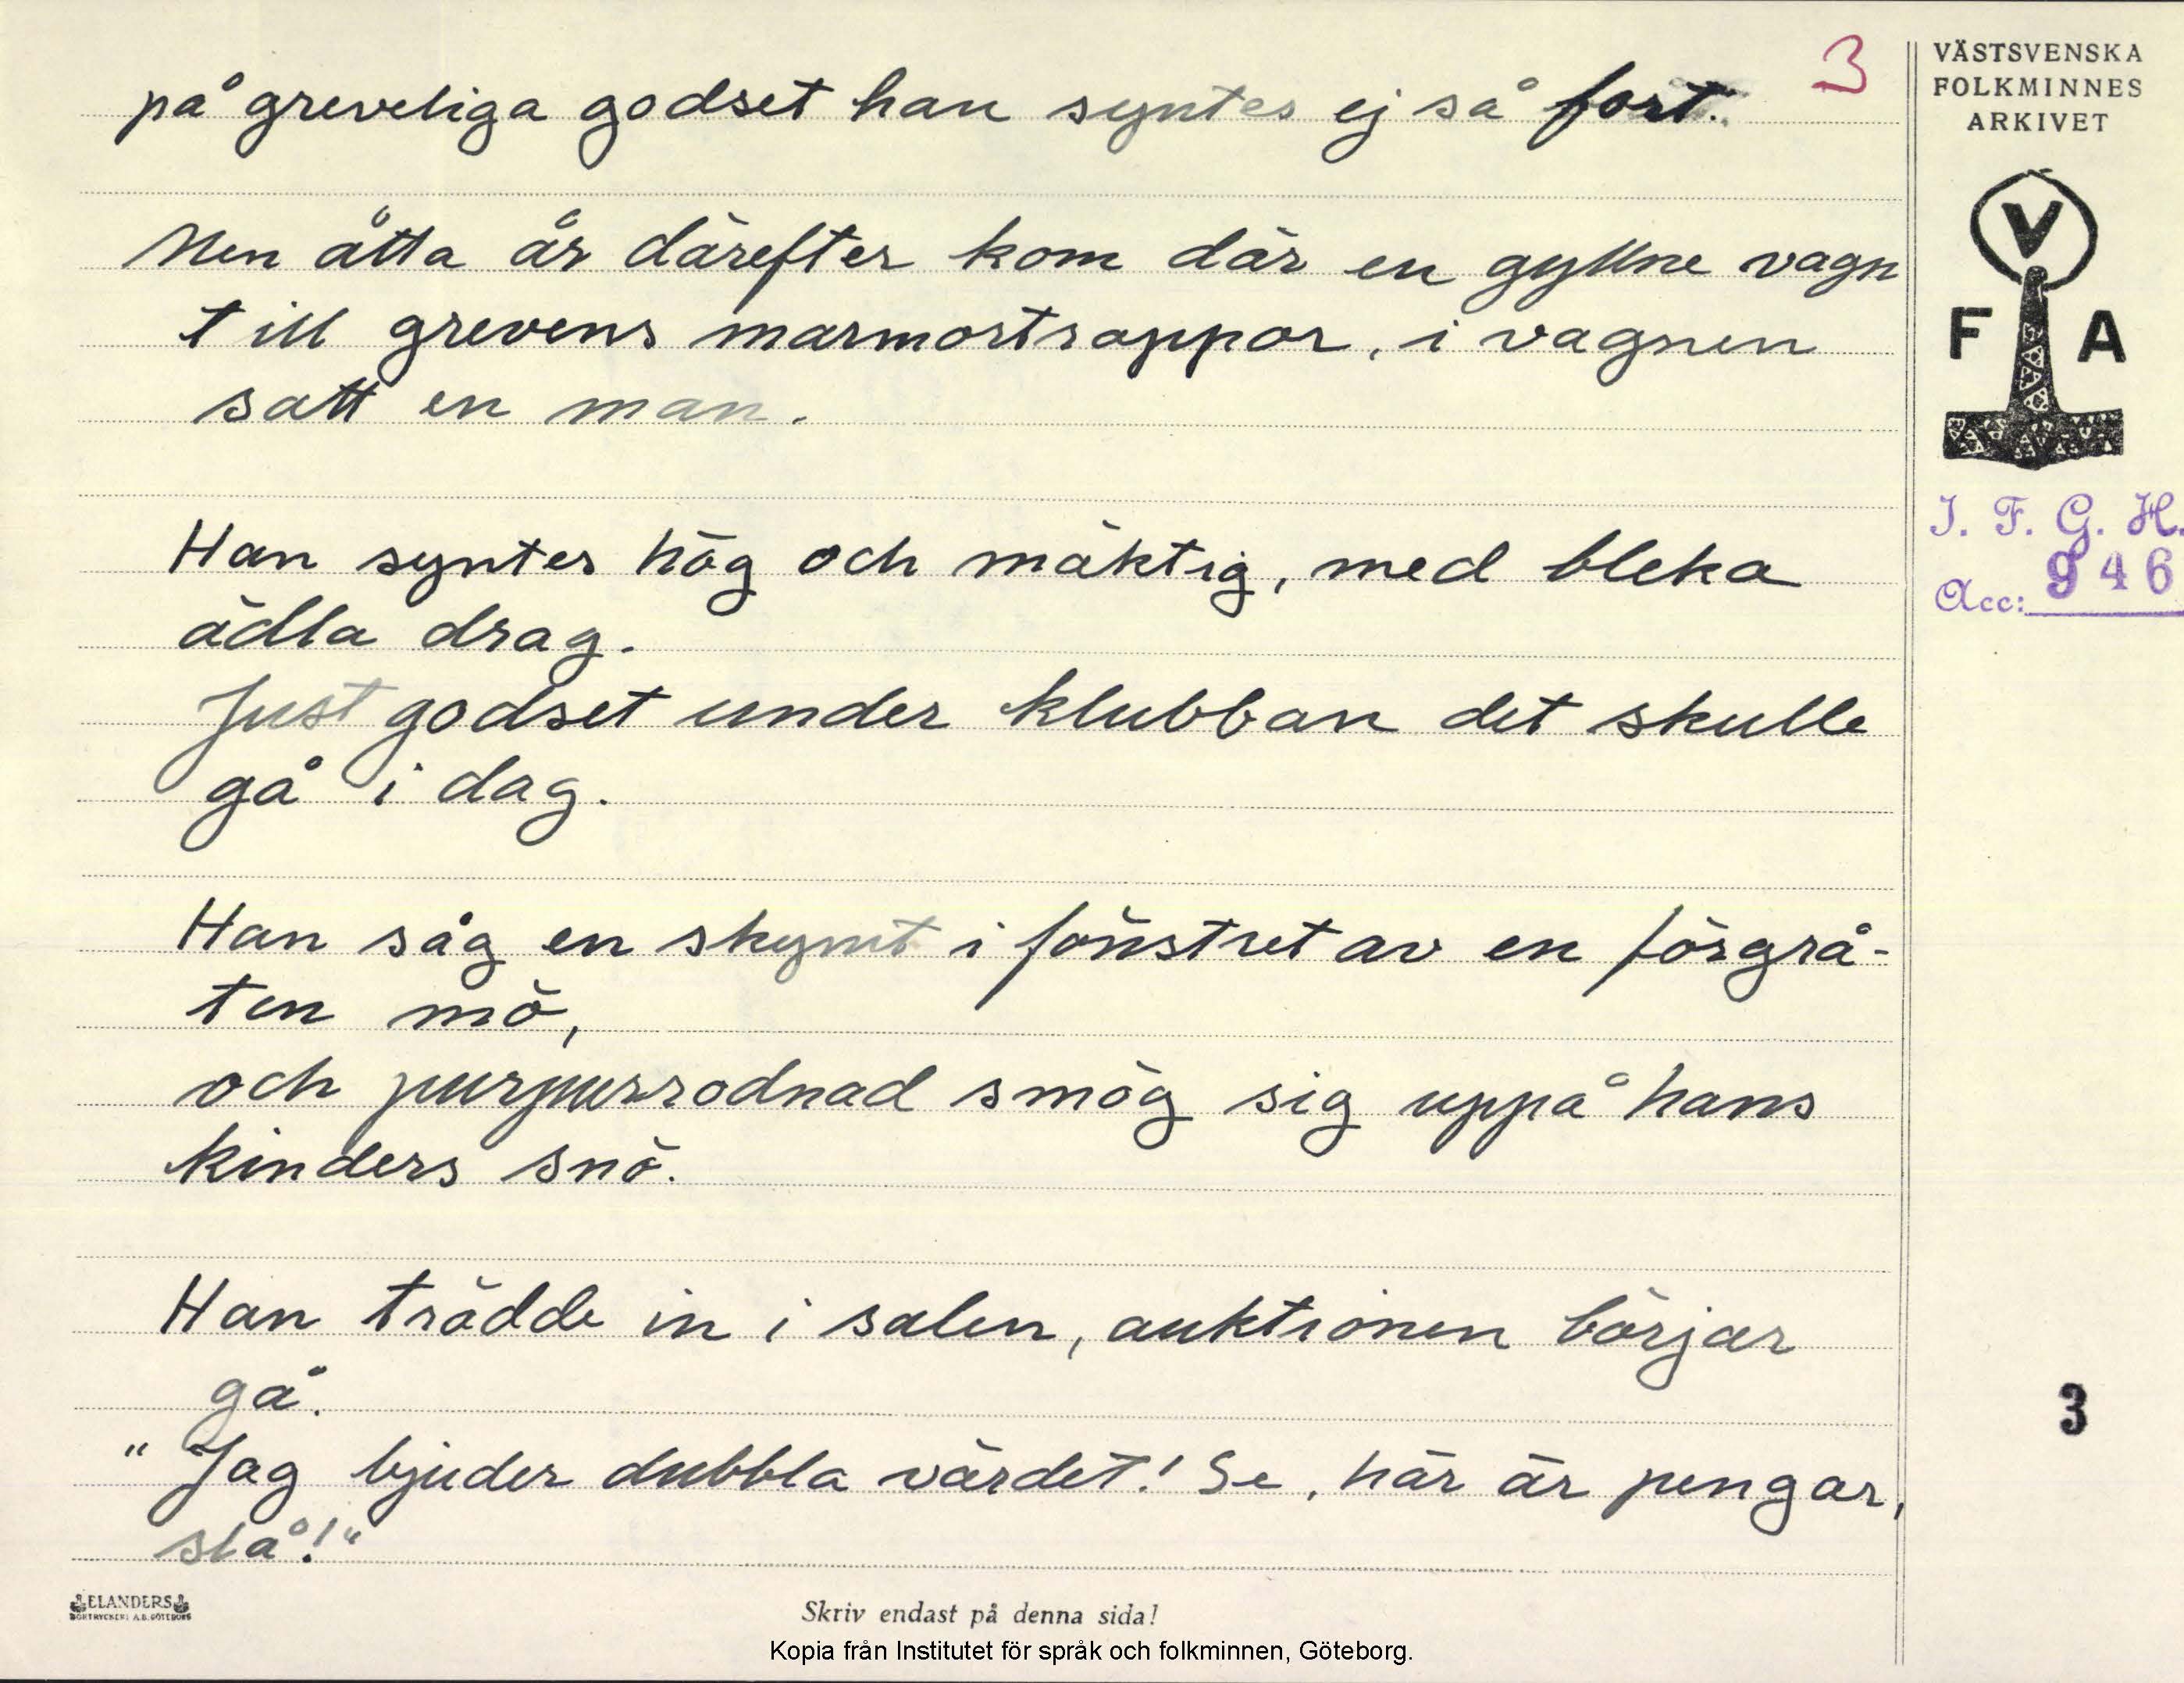 3
på greveliga godset han syntes ej så fort.
Men åtta år därefter kom där en gyllne vagn
till grevens marmortrappor, i vagnen
satt en man.
Han syntes hög och mäktig, med bleka
ädla drag.
Just godset under klubban det skulle
gå i dag.
Han såg en skymt i fönstret av en förgrå-
ten mö,
och purpurrodnad smög sig uppå hans
kinders snö.
Han trädde in i salen, auktionen börjar
gå.
" Jag bjuder dubbla värdet! Se, här är pengar,
slå!"
VÄSTSVENSKA
FOLKMINNES
ARKIVET
V
F A
I. F. G. H.
Acc: 946
3
ELANDERS
BOKTRYCKERI A.B. GÖTEBORG
Skriv endast på denna sida!
Kopia från Institutet för språk och folkminnen, Göteborg.